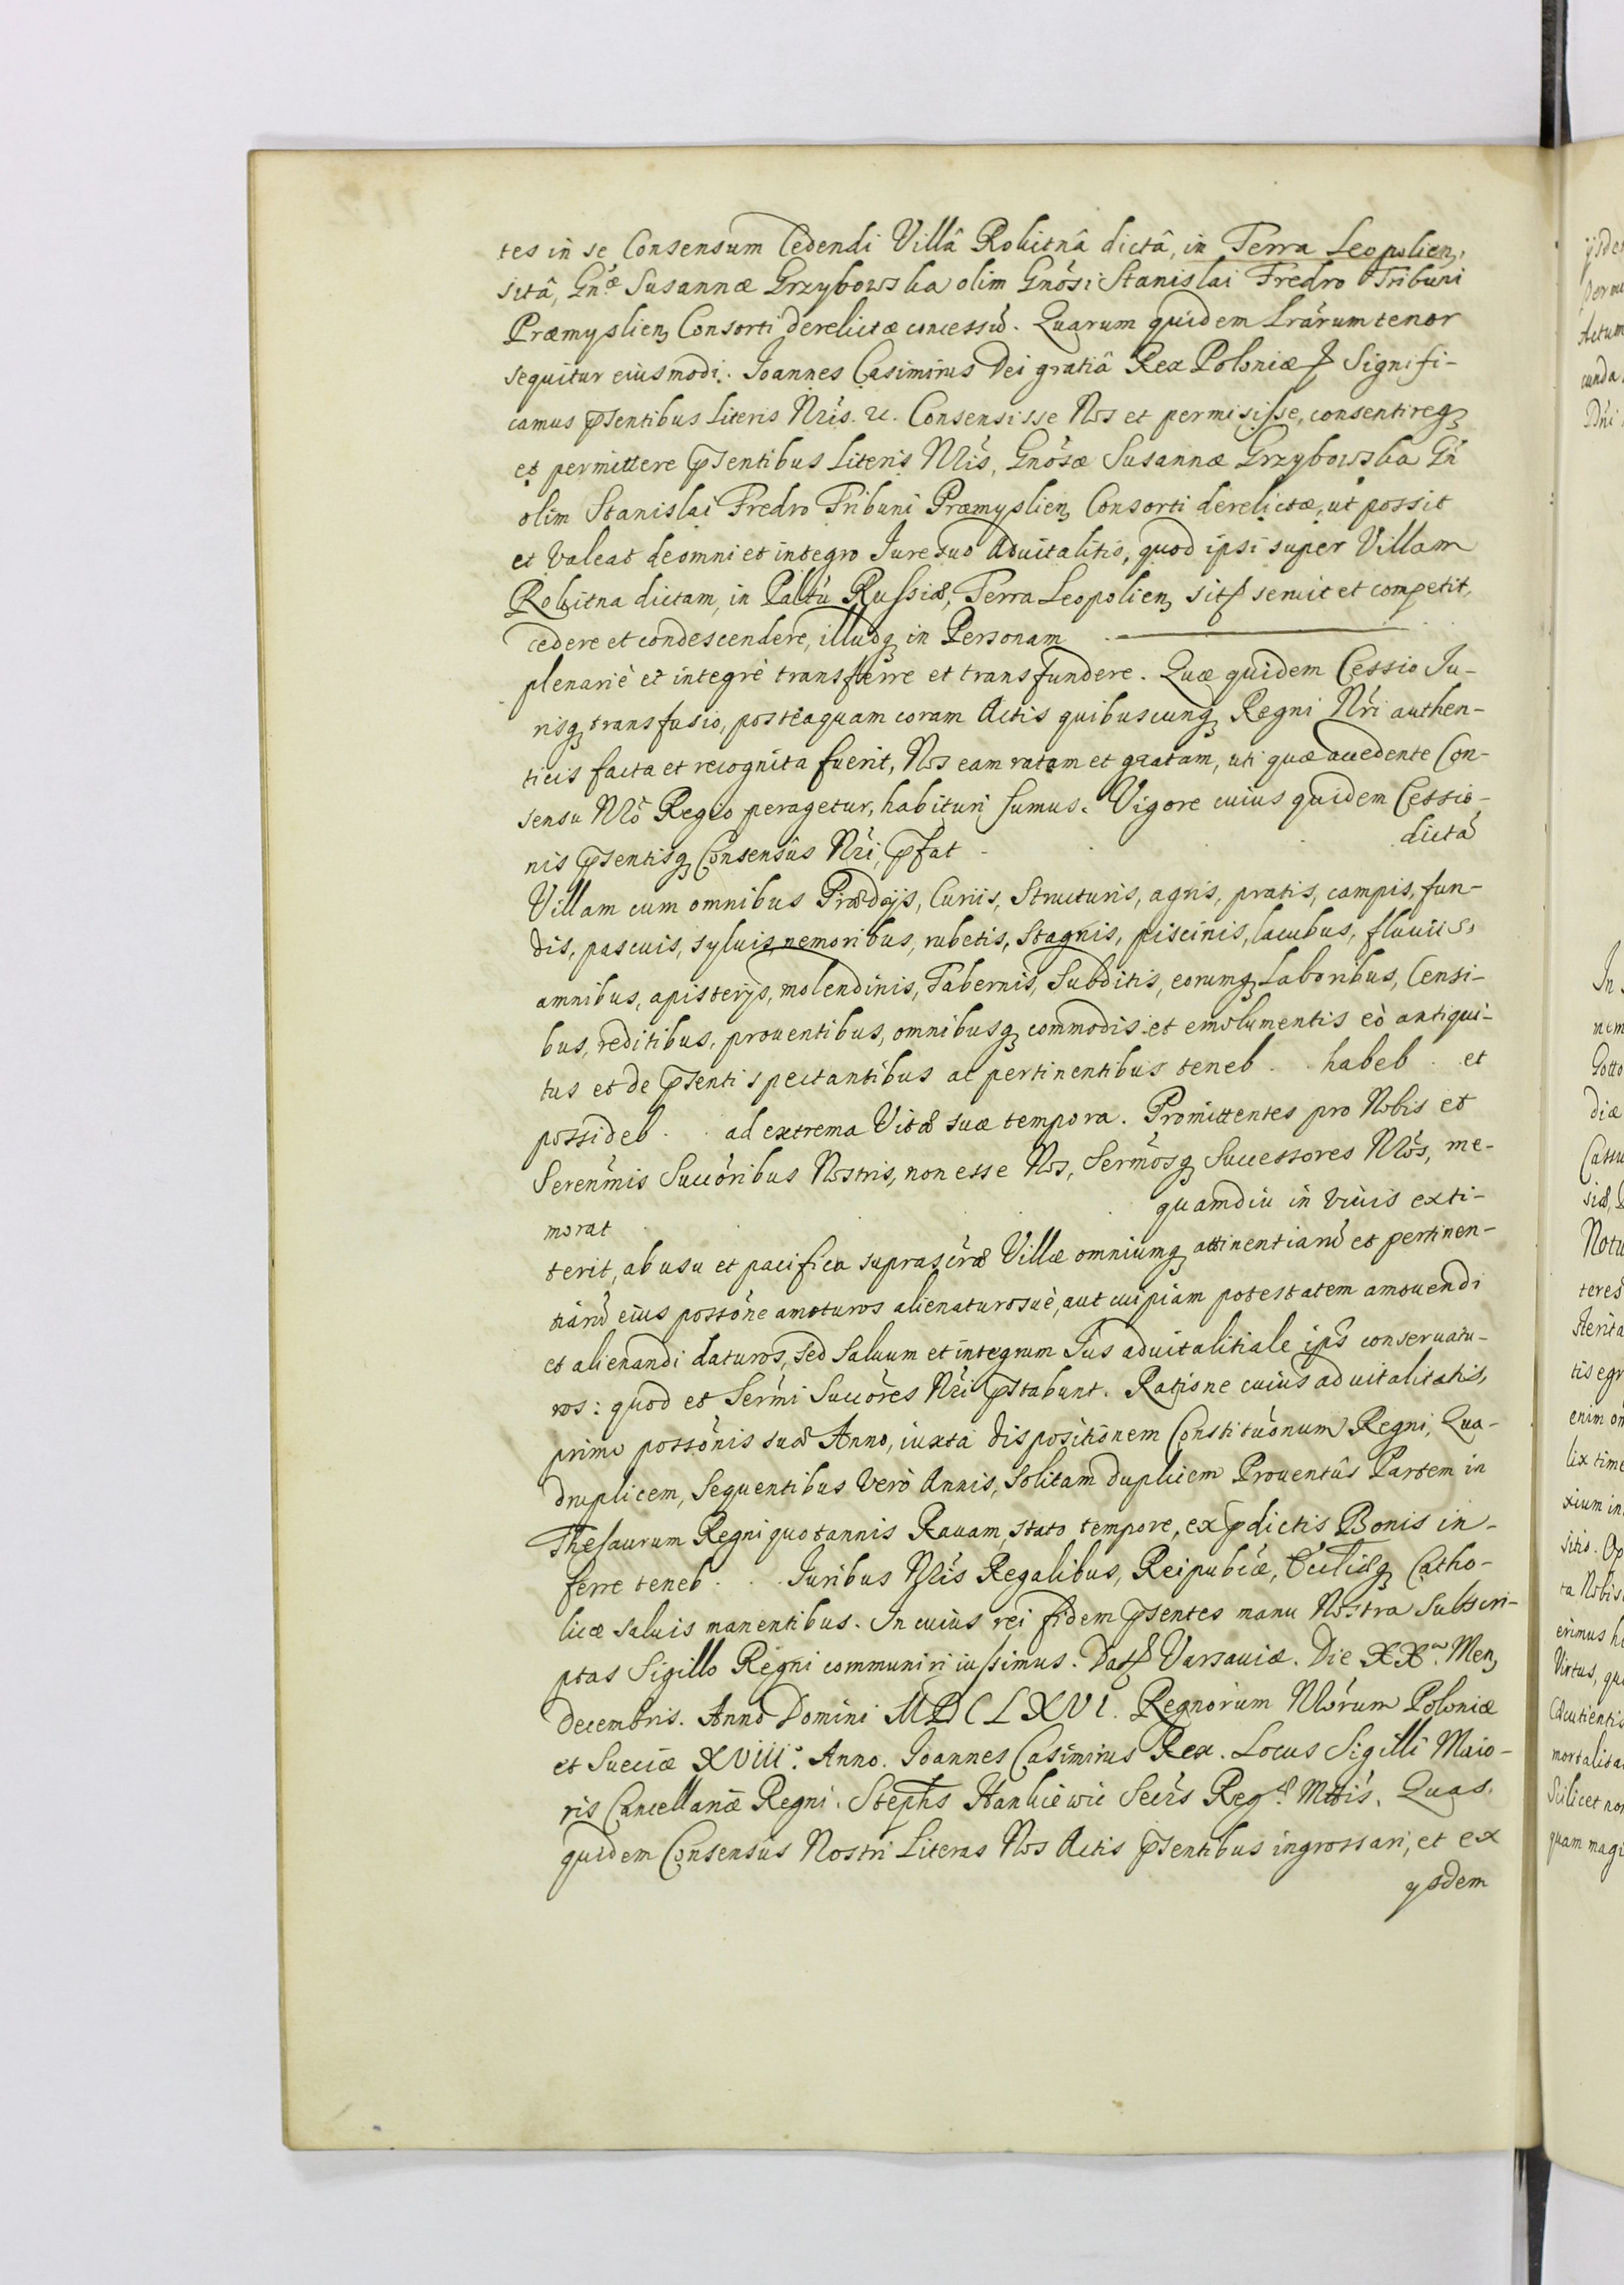 tes in se Consensum Cedendi Villâ Rokitnâ dictâ, in Terra Leopolien,
sitâ, Gnæ Susannæ Grzybowska olim Gnosi Stanislai Fredro Tribuni
Præmyslien, Consorti derelictæ concessũ. Quarum quidem Lrarum tenor
sequitur eiusmodi. Joannes Casimirus Dei gratiâ Rex Poloniæ Signifi-
camus pñtibus Literis Nris. &c. Consensisse Nos et permisisse, consentireq,
et permittere psentibus Literis Nris, Gnosæ Susannæ Grzybowska Gñ
olim Stanislai Fredro Tribuni Præmyslien, Consorti derelictæ, ut possit
et valeat de omni et integro Jure suo aduitalitio, quod ipsi super Villam
Rokitna dictam, in Paltũ Russiæ, Terra Leopolien, sit seruit et competit,
cedere et condescendere, illudq, in Personam
plenariè et integrè transferre et transfundere. Quæ quidem Cessio Ju-
risq, transfusio, posteaquam coram Actis quibuscunq, Regni Nri authen-
ticis facta et recognita fuerit, Nos eam ratam et gratam, uti quæ accedente Con-
sensu Nro Regio peragetur, habituri sumus. Vigore cuius quidem Cessio-
nis psentisq, Consensûs Nri, pfat dictã
Villam cum omnibus Prædijs, Curiis, Structuris, agris, pratis, campis, fun-
dis, pascuis, syluis, nemoribus, rubetis, stagnis, piscinis, lacubus, fluuiis,
amnibus, apisterijs, molendinis, Tabernis, Subditis, eorumq, Laboribus, Censi-
bus, reditibus, prouentibus, omnibusq, commodis et emolumentis eò antiqui-
tus et de psenti spectantibus ac pertinentibus teneb . . habeb . et
possideb . . ad extrema Vitæ suæ tempora. Promittentes pro Nobis et
Serenmis Succoribus Nostris, non esse Nos, Sermosq, Successores Nros, me-
morat quamdiu in viuis exti-
terit, ab usu et pacifica suprascræ Villæ omniumq, attinentiarũ et pertinen-
tiarũ eius possone amoturos alienaturosuè, aut cuipiam potestatem amouendi
et alienandi daturos, sed saluum et integrum Jus aduitalitiale ips conseruatu-
ros: quod et Sermi Succores Nri pstabunt. Ratione cuius aduitalitatis,
primo possonis suæ Anno, iuxta dispositionem Constituonum Regni, Qua-
druplicem, Sequentibus verò Annis, Solitam duplicem Prouentûs Partem in
Thesaurum Regni quotannis Rauam, stato tempore, ex pdictis Bonis in-
ferre teneb . . Juribus Nris Regalibus, Reipubcæ, Eccliæq, Catho-
licæ saluis manentibus. In cuius rei fidem psentes manu Nostra Subscri-
ptas Sigillo Regni communiri iussimus. Dat Varsauiæ. Die XX. Men,
decembris. Anno Domini MDCLXVI. Regnorum Nrorum Poloniæ
et Sueciæ XVIII. Anno. Joannes Casimirus Rex. Locus Sigilli Maio-
ris Cancellariæ Regni. Stephs Hankiewic Secrs Reg. Mttis. Quas
quidem Consensûs Nostri Literas Nos Actis psentibus ingrossari, et ex
ysdem